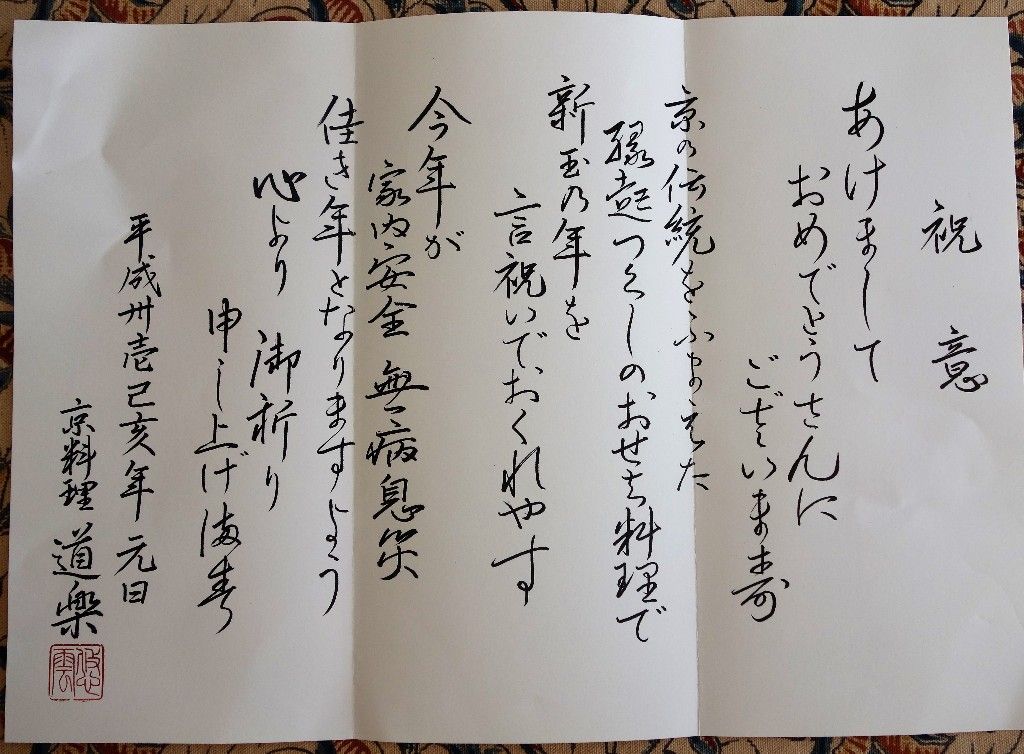 祝意
あけまして
おめでとうさんに
ございま寿
京の伝統をふまえた
縁起つくしのおせち料理で
新玉乃年を
言祝いでおくれやす
今年が
家内安全 無病息災
佳き年となりますよう
心より 御祈り
申し上げ満春
平成卅壱己亥年 元日
京料理 道樂
悠雲